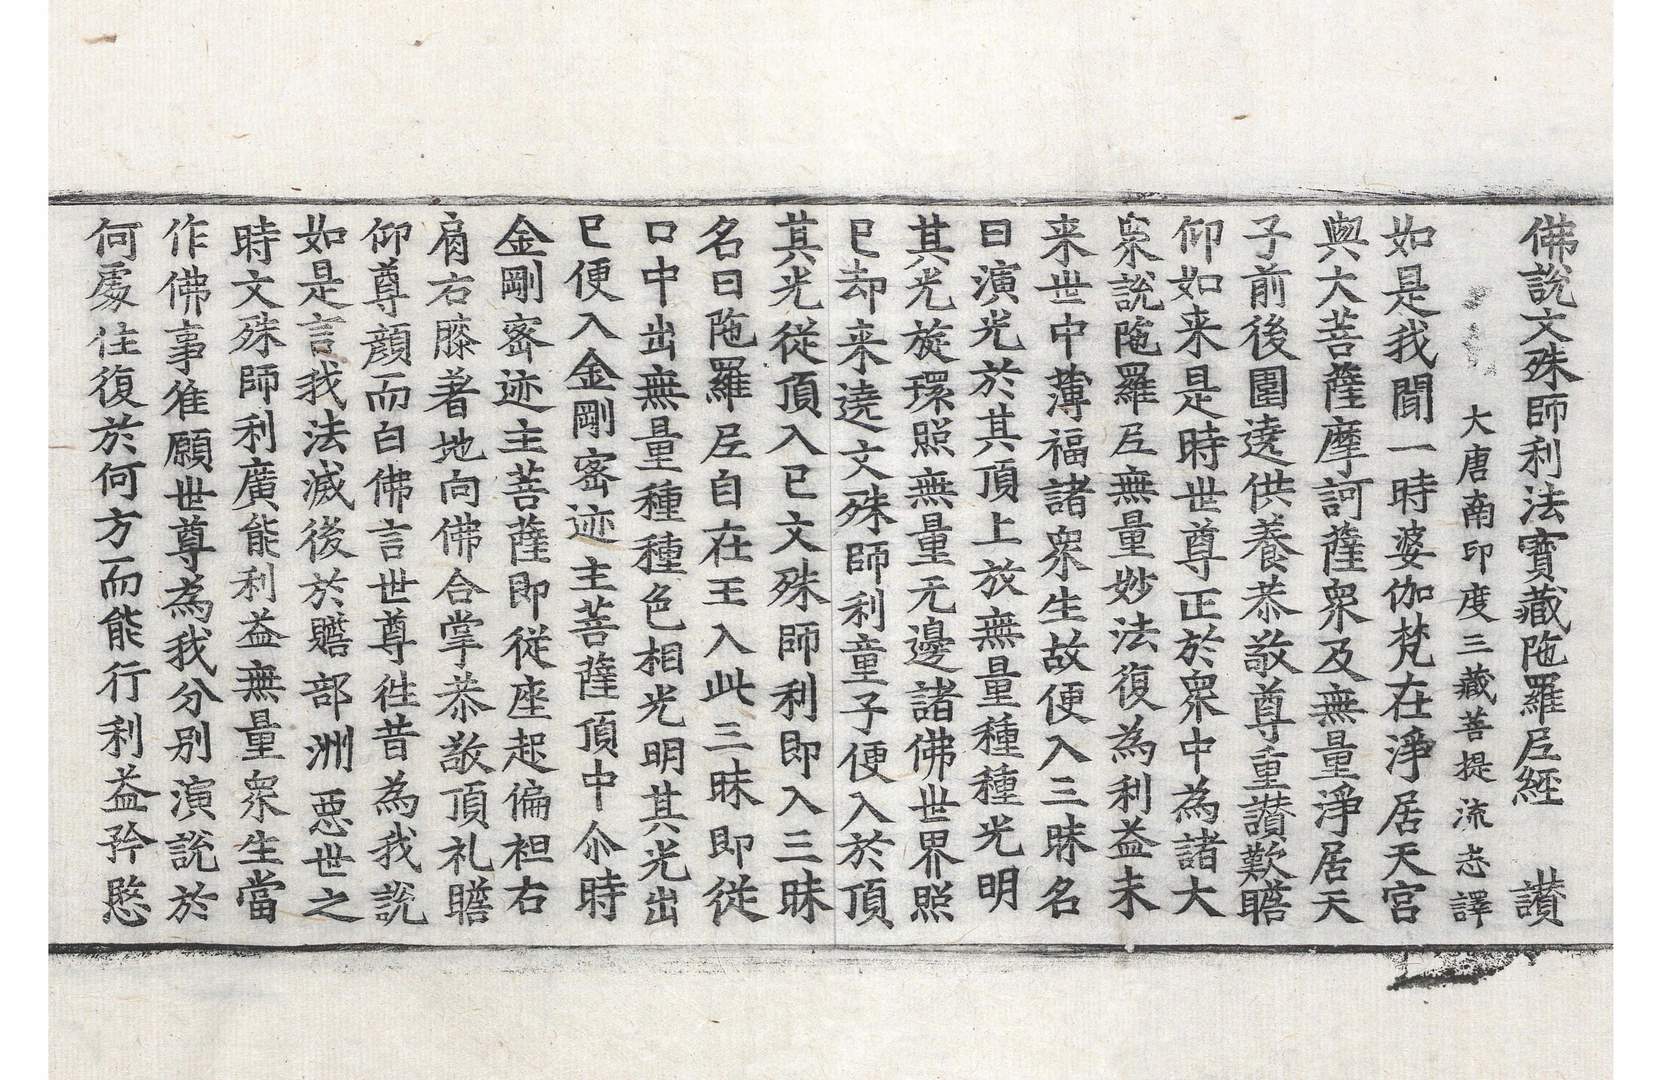 佛說文殊師利法寶藏陁羅尼經　讃
大唐南印度三藏菩提流志譯
如是我聞一時婆伽梵在淨居天宮
與大菩薩摩訶薩衆及無量淨居天
子前後圍遶供養恭敬尊重讃歎瞻
仰如来是時世尊正於衆中為諸大
衆說陁羅尼無量妙法復為利益未
来世中薄福諸衆生故便入三昧名
曰演光於其頂上放無量種種光明
其光旋環照無量无邊諸佛世界照
已却来遶文殊師利童子便入於頂
其光従頂入已文殊師利即入三昧
名曰陁羅尼自在王入此三昧即従
口中出無量種種色相光明其光出
已便入金剛密迹主菩薩頂中尒時
金剛密迹主菩薩即従座起偏袒右
肩右膝著地向佛合掌恭敬頂礼瞻
仰尊顔而白佛言世尊往昔為我說
如是言我法滅後於贍部洲惡世之
時文殊師利廣能利益無量衆生當
作佛事唯願世尊為我分别演說於
何處住復於何方而能行利益矜愍